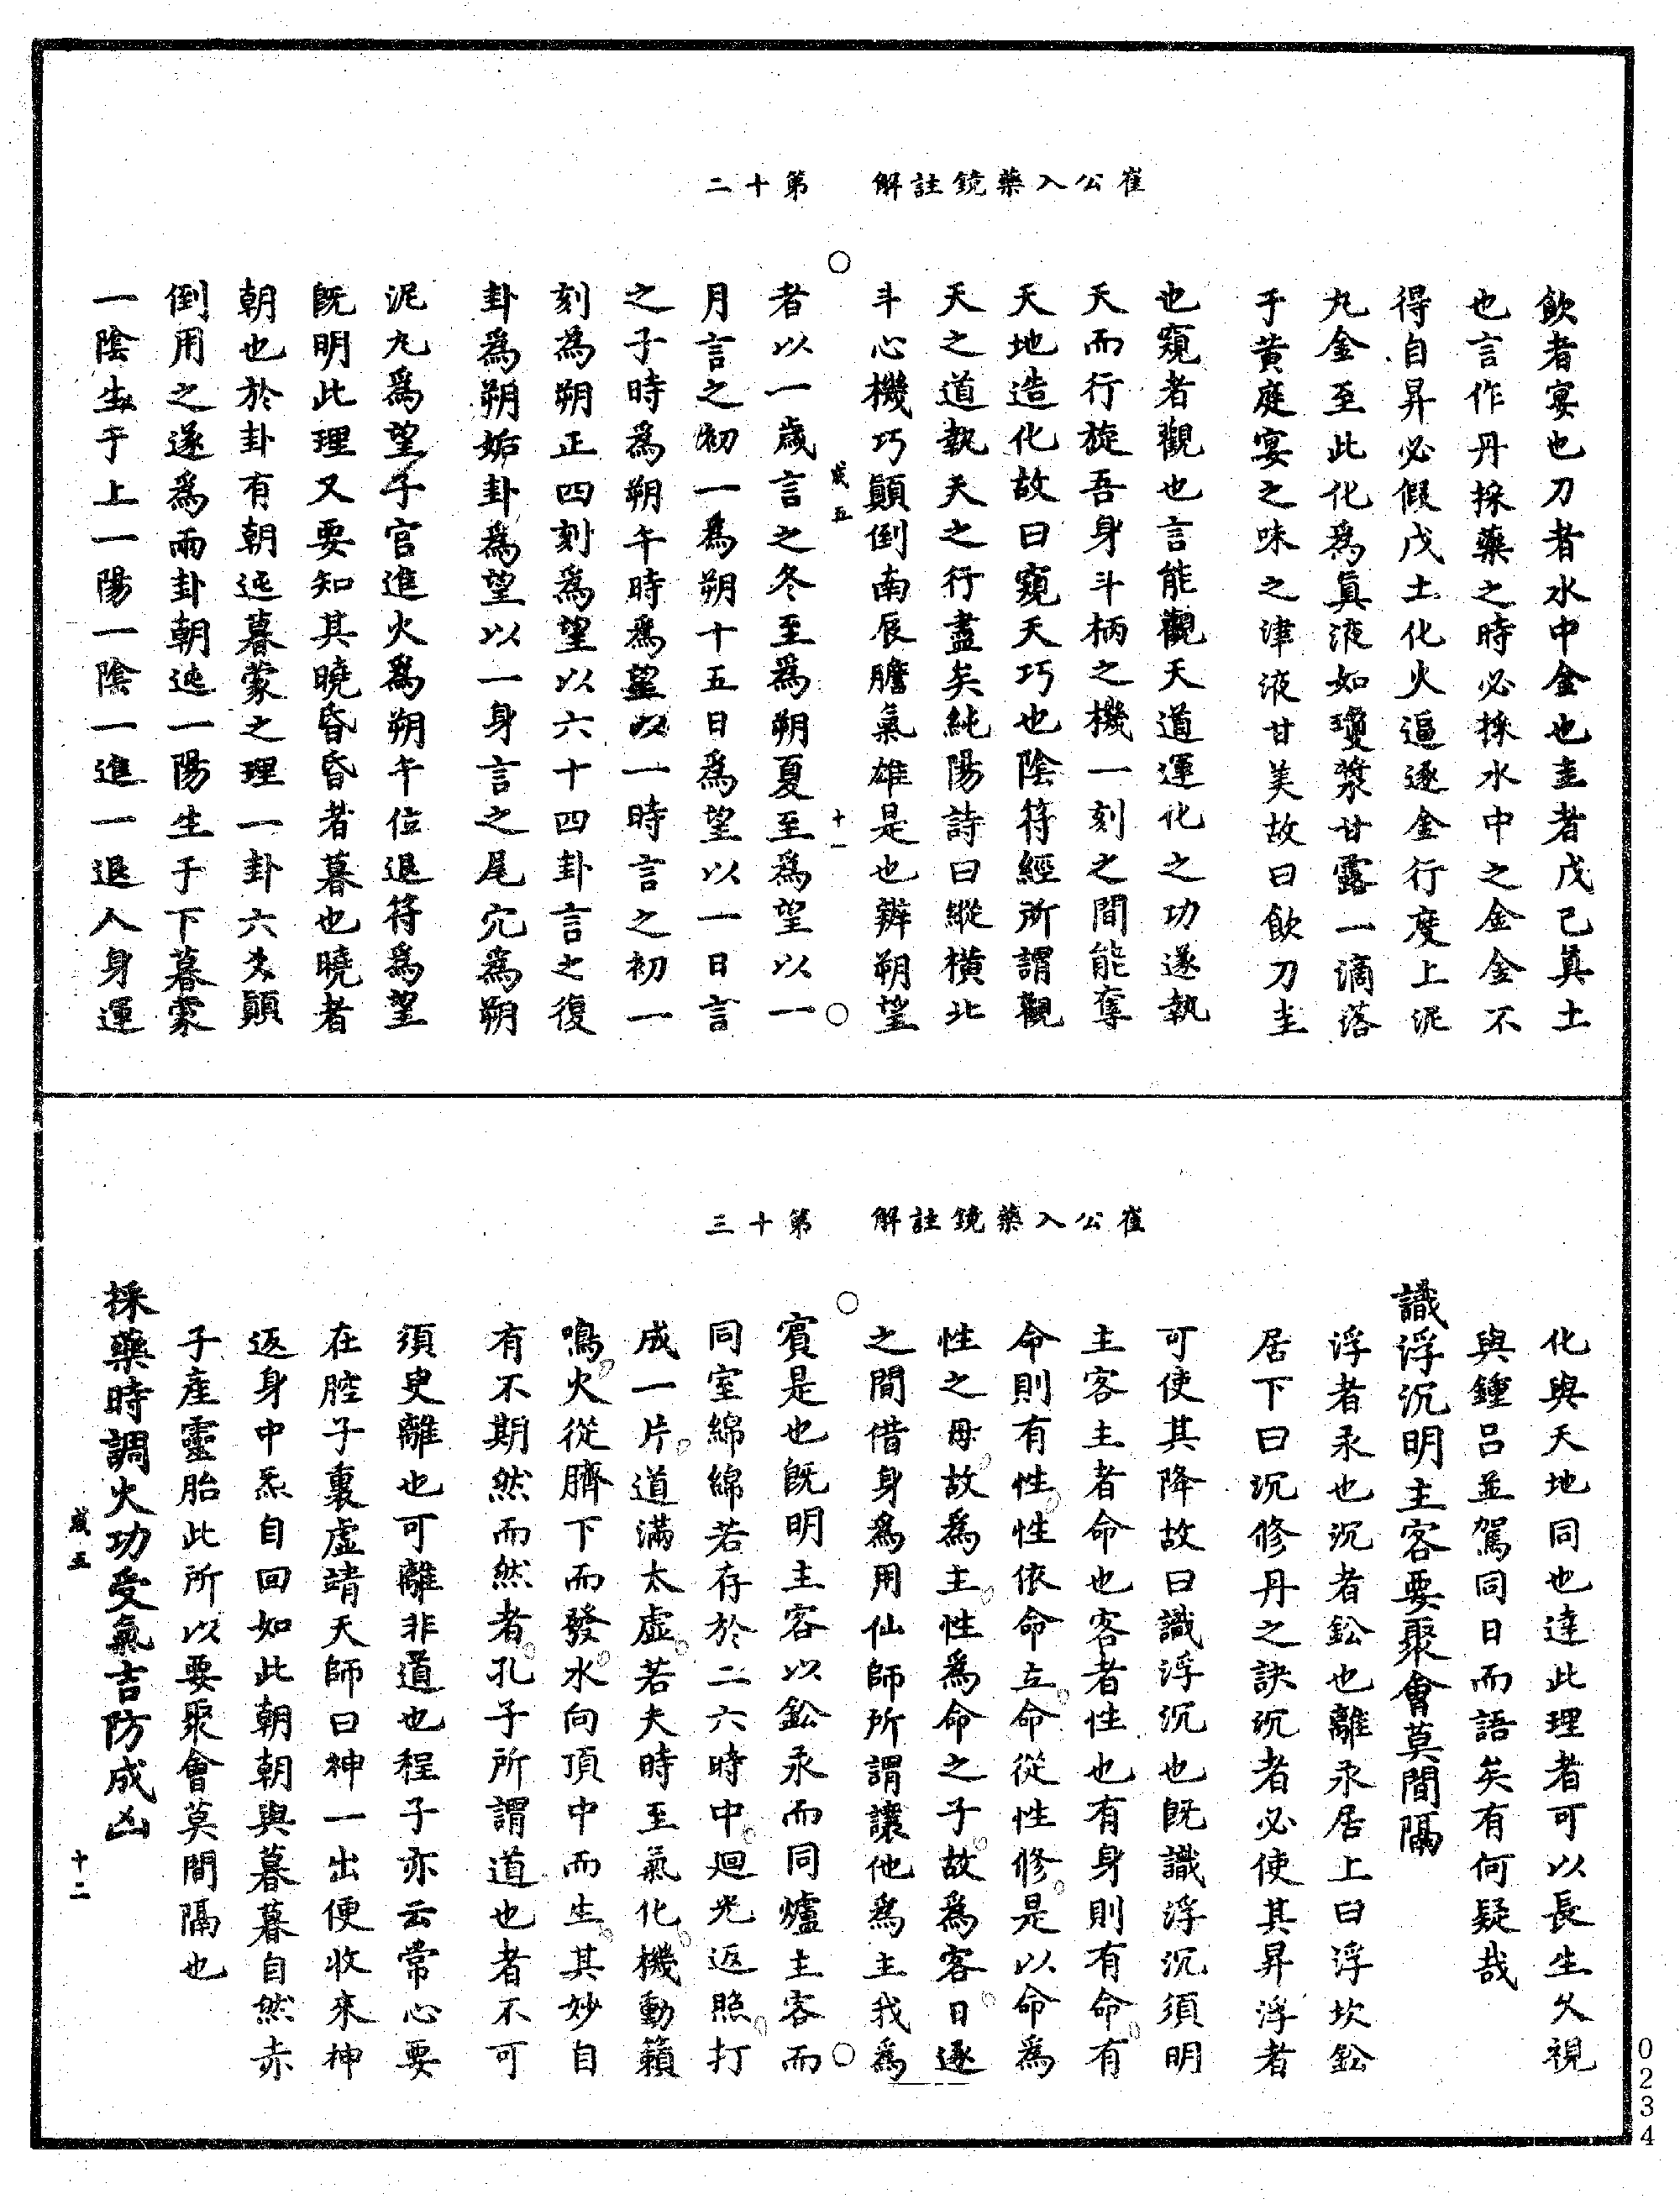 崔公入藥鏡註解　第十二
飲者宴也刀者水中金也圭者戊己真土
也言作丹採藥之時必採水中之金金不
得自昇必假戊土化火逼逐金行度上泥
丸金至此化為真液如瓊漿甘露一滴落
于黃庭宴之味之津液甘美故曰飲刀圭
也窺者觀也言能觀天道運化之功遂執
天而行旋吾身斗柄之機一刻之間能奪
天地造化故曰窺天巧也陰符經所謂觀
天之道執天之行盡矣純陽詩曰縱橫北
斗心機巧顛倒南辰膽氣雄是也辨朔望
咸五
十一
者以一歲言之冬至為朔夏至為望以一
月言之初一為朔十五日為望以一日言
之子時為朔午時為望以一時言之初一
刻為朔正四刻為望以六十四卦言之復
卦為朔姤卦為望以一身言之尾穴為朔
泥丸為望子宮進火為朔午位退符為望
既明此理又要知其曉昏昏者暮也曉者
朝也於卦有朝屯暮蒙之理一卦六爻顛
倒用之遂為兩卦朝屯一陽生于下暮蒙
一陰生于上一陽一陰一進一退人身運
崔公入藥鏡註解　第十三
化與天地同也達此理者可以長生久視
與鍾呂並駕同日而語矣有何疑哉
識浮沉明主客要聚會莫間隔
浮者汞也沉者鈆也離汞居上曰浮坎鈆
居下曰沉修丹之訣沉者必使其昇浮者
可使其降故曰識浮沉也既識浮沉須明
主客主者命也客者性也有身則有命有
命則有性性依命立命從性修是以命為
性之母故為主性為命之子故為客日逐
之間借身為用仙師所謂讓他為主我為
賓是也既明主客以鈆汞而同爐主客而
同室綿綿若存於二六時中迴光返照打
成一片道滿太虛若夫時至氣化機動籟
鳴火從臍下而發水向頂中而生其妙自
有不期然而然者孔子所謂道也者不可
須臾離也可離非道也程子亦云常心要
在腔子裏虛靖天師曰神一出便收來神
返身中炁自回如此朝朝與暮暮自然赤
子產靈胎此所以要聚會莫間隔也
採藥時調火功受氣吉防成凶
咸五
十二
0234